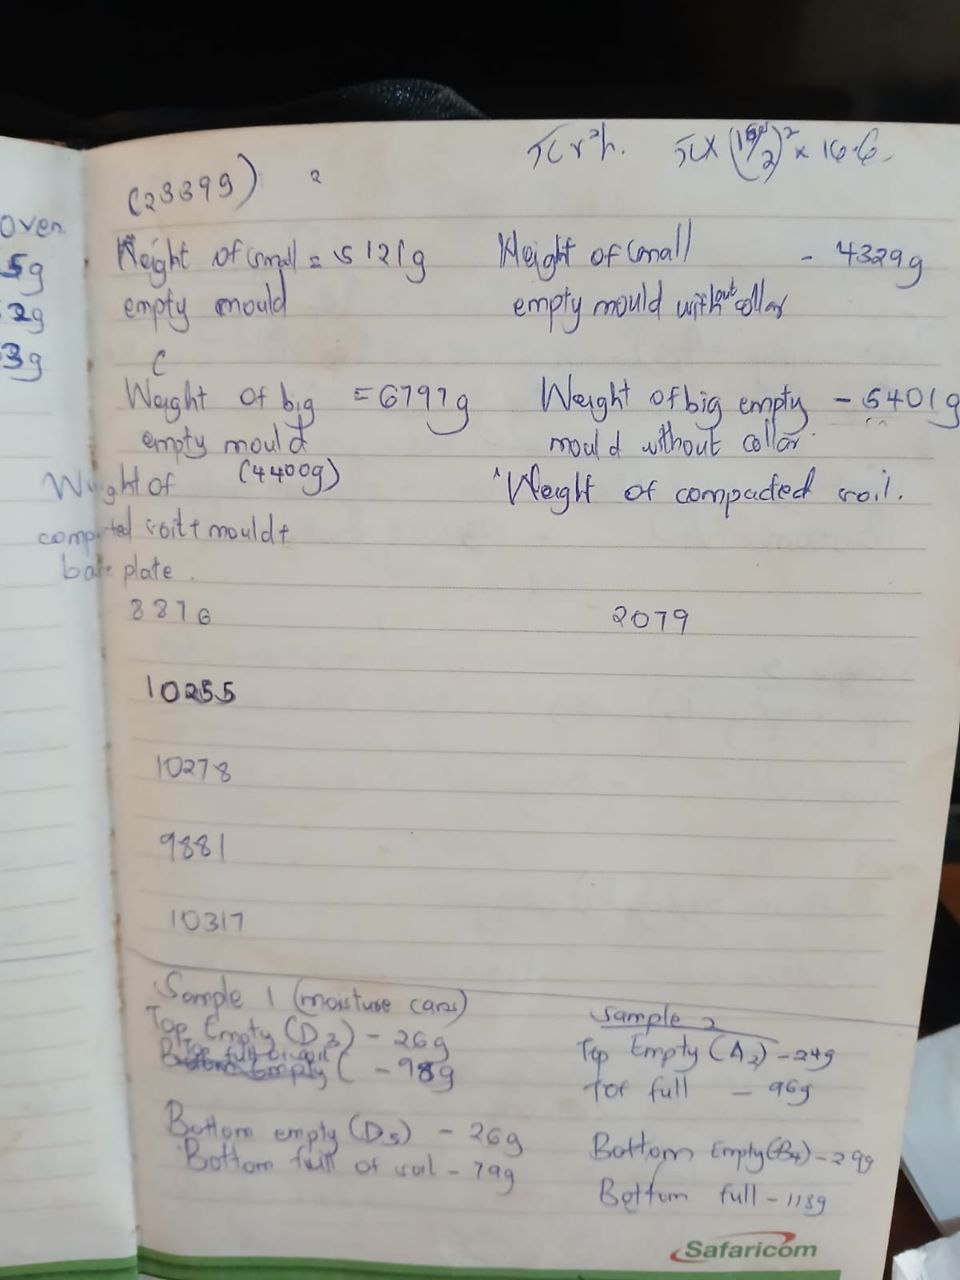 πr²h. πx( /2)²x 16.6
(2339g) 2
Oven
5g
2g
3g
Weight of small = 5121g
empty mould
Height of small - 4329g
empty mould without collar
C
Weight of big = 6797g
empty mould
(4400g)
Weight of big empty - 5401g
mould without collar
Weight of
compacted soil + mould +
base plate.
Weight of compacted soil.
8876 2079
10255
10278
9881
10317
Sample 1 (moisture cans)
Top Empty (D3) - 26g
- 98g
Bottom empty (D5) - 26g
Bottom full of soil - 79g
Sample 2
Top Empty (A2) - 24g
Top full - 96g
Bottom Empty (B4) - 29g
Bottom full - 118g
Safaricom